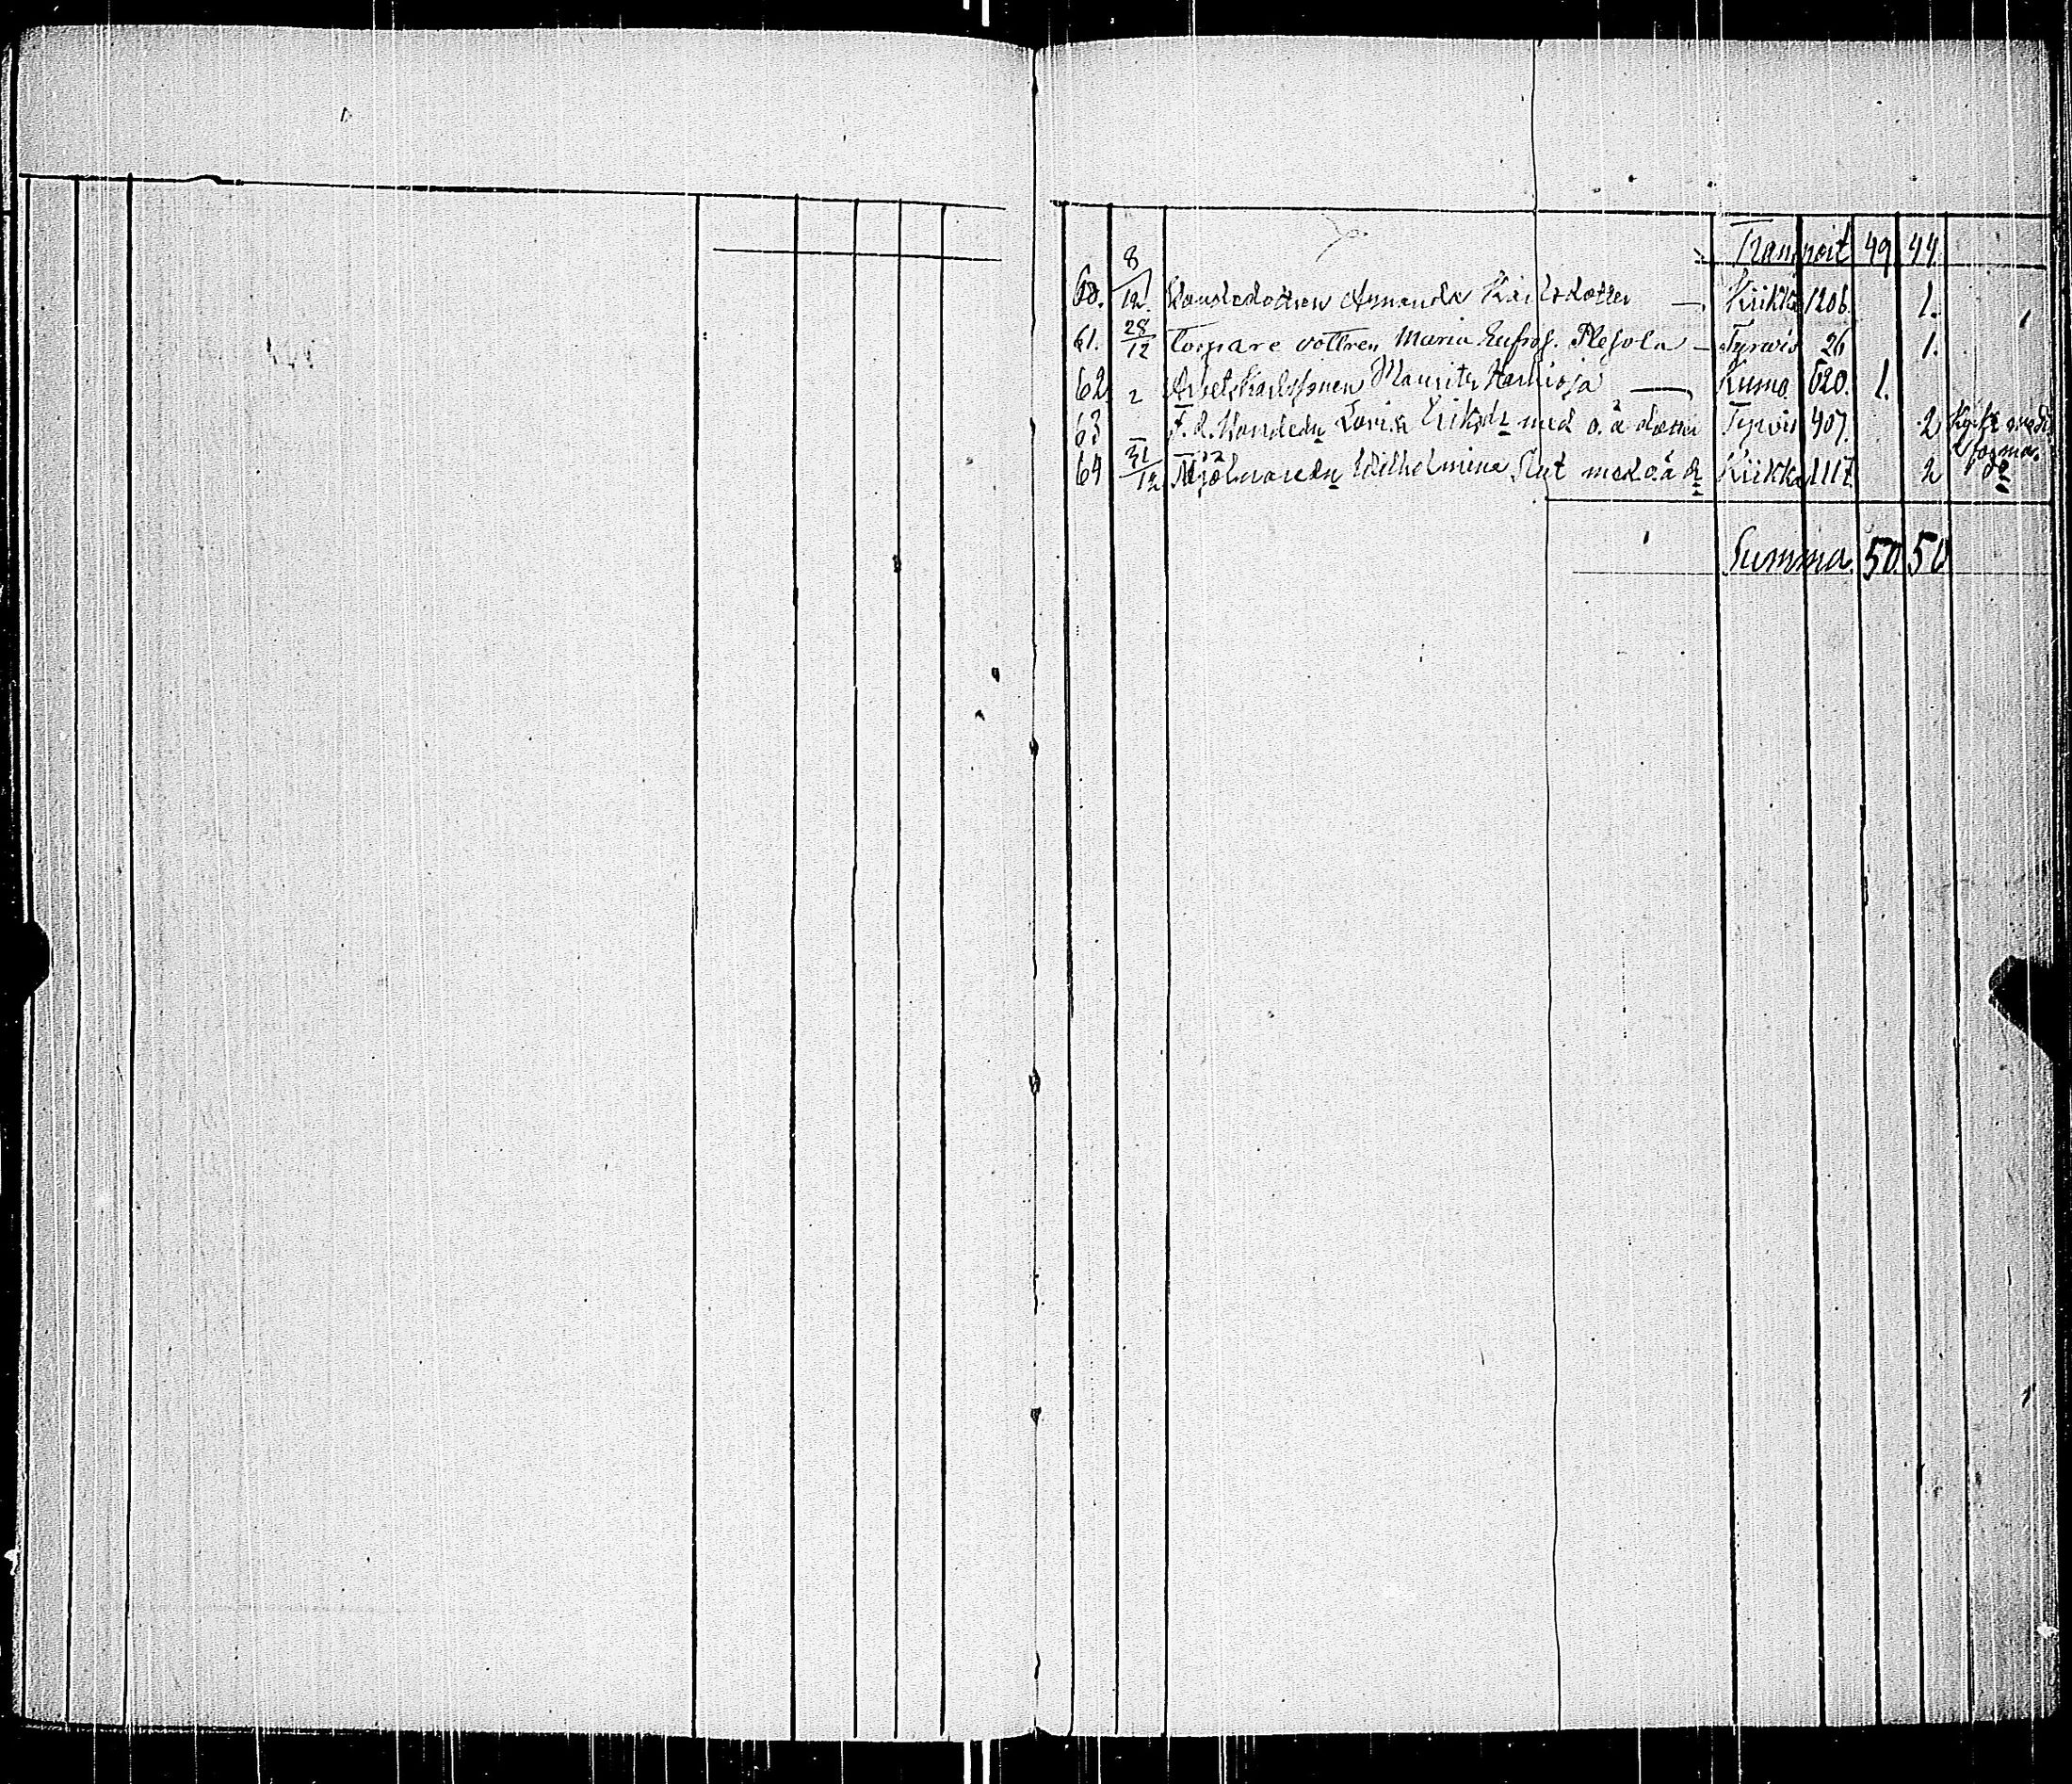 Transport 49 44
60. 8/12. Bondedottren Amanda Karlsdotter — Kiikka 1206. 1.
61. 28/12 Torpare dottren Maria Eufros. Plesola — Tyrvis 26 1.
62 " Arbetskarlssonen Maurits Harhioja — Kumo 620. 1.
63 F.d. Bondedn Lovisa Eriksdr med o.ä dotter Tyrvis 407. 2
64 31/12 Mjölnaredn Wilhelmina Rut med o.ä dr Kiikka 1117. 2
Summa 50 50